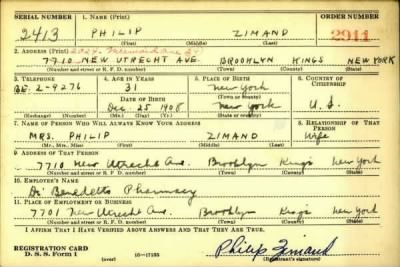 SERIAL NUMBER 1. NAME (Print) ORDER NUMBER
2413 PHILIP ZIMAND 2911
(First) (Middle) (Last)
2. ADDRESS (Print) 2024 Mermaid Ave
7710 NEW UTRECHT AVE BROOKLYN KINGS NEW YORK
(Number and street or R. F. D. number) (Town) (County) (State)
3. TELEPHONE 4. AGE IN YEARS 5. PLACE OF BIRTH 6. COUNTRY OF CITIZENSHIP
BE. 2-9276 31 New York
DATE OF BIRTH (Town or county)
Dec. 25 1908 New York U. S.
(Exchange) (Number) (Mo.) (Day) (Yr.) (State or country)
7. NAME OF PERSON WHO WILL ALWAYS KNOW YOUR ADDRESS 8. RELATIONSHIP OF THAT PERSON
MRS. PHILIP ZIMAND Wife
(Mr., Mrs., Miss) (First) (Middle) (Last)
9. ADDRESS OF THAT PERSON
7710 New Utrecht Ave. Brooklyn Kings New York
(Number and street or R. F. D. number) (Town) (County) (State)
10. EMPLOYER'S NAME
Di Benedetto Pharmacy
11. PLACE OF EMPLOYMENT OR BUSINESS
7701 New Utrecht Ave. Brooklyn Kings New York
(Number and street or R. F. D. number) (Town) (County) (State)
I AFFIRM THAT I HAVE VERIFIED ABOVE ANSWERS AND THAT THEY ARE TRUE.
REGISTRATION CARD Philip Zimand
D. S. S. Form 1 (over) 16-17105 (Registrant's signature)